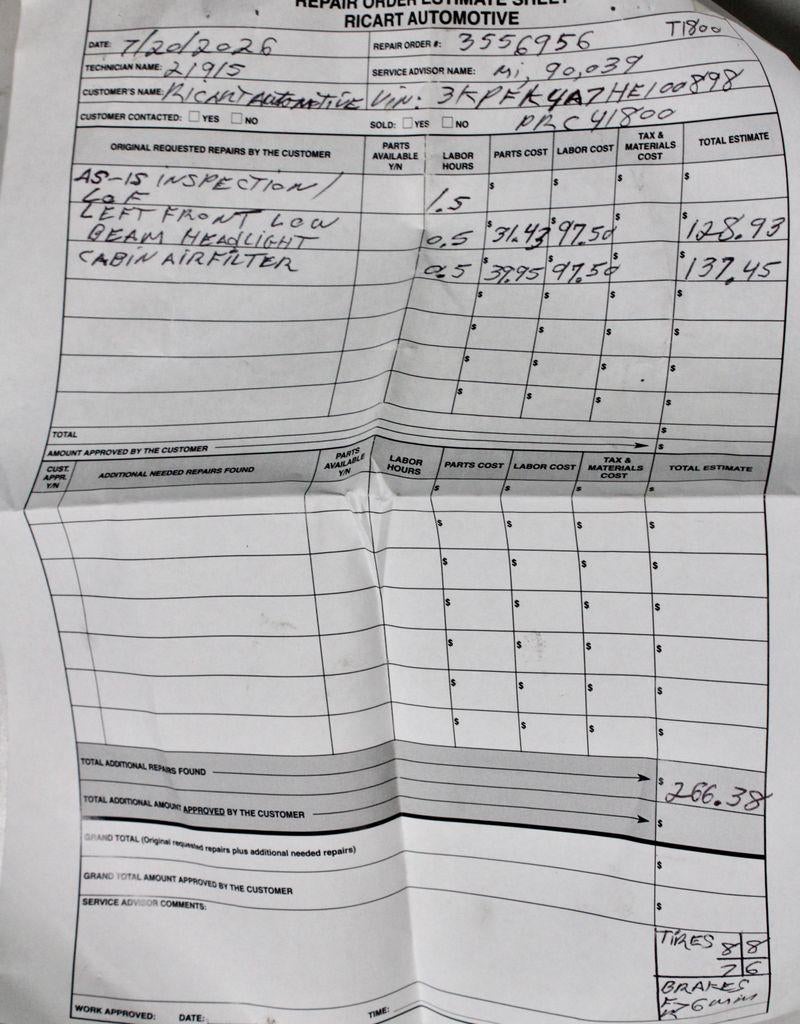 REPAIR ORDER ESTIMATE SHEET
RICART AUTOMOTIVE
T1800
DATE: 7/20/2026 REPAIR ORDER #: 3556956
TECHNICIAN NAME: 21915 SERVICE ADVISOR NAME: Mi, 90,039
CUSTOMER'S NAME: RICART AUTOMOTIVE VIN: 3KPFK4A7HE100898
CUSTOMER CONTACTED: YES NO SOLD: YES NO PRC41800
ORIGINAL REQUESTED REPAIRS BY THE CUSTOMER PARTS AVAILABLE Y/N LABOR HOURS PARTS COST LABOR COST TAX & MATERIALS COST TOTAL ESTIMATE
AS-IS INSPECTION/
LOF 1.5 $ $ $ $
LEFT FRONT LOW
BEAM HEADLIGHT 0.5 $31.43 $97.50 $128.93
CABIN AIR FILTER 0.5 $39.95 $97.50 $137.45
$ $ $ $
$ $ $ $
$ $ $ $
$ $ $ $
TOTAL $
AMOUNT APPROVED BY THE CUSTOMER $
CUST. APPR. Y/N ADDITIONAL NEEDED REPAIRS FOUND PARTS AVAILABLE Y/N LABOR HOURS PARTS COST LABOR COST TAX & MATERIALS COST TOTAL ESTIMATE
$ $ $ $
$ $ $ $
$ $ $ $
$ $ $ $
$ $ $ $
$ $ $ $
$ $ $ $
TOTAL ADDITIONAL REPAIRS FOUND $266.38
TOTAL ADDITIONAL AMOUNT APPROVED BY THE CUSTOMER $
GRAND TOTAL (Original requested repairs plus additional needed repairs) $
GRAND TOTAL AMOUNT APPROVED BY THE CUSTOMER $
SERVICE ADVISOR COMMENTS:
TIRES 8 8
7 6
BRAKES
F>6mm
WORK APPROVED: DATE: TIME: